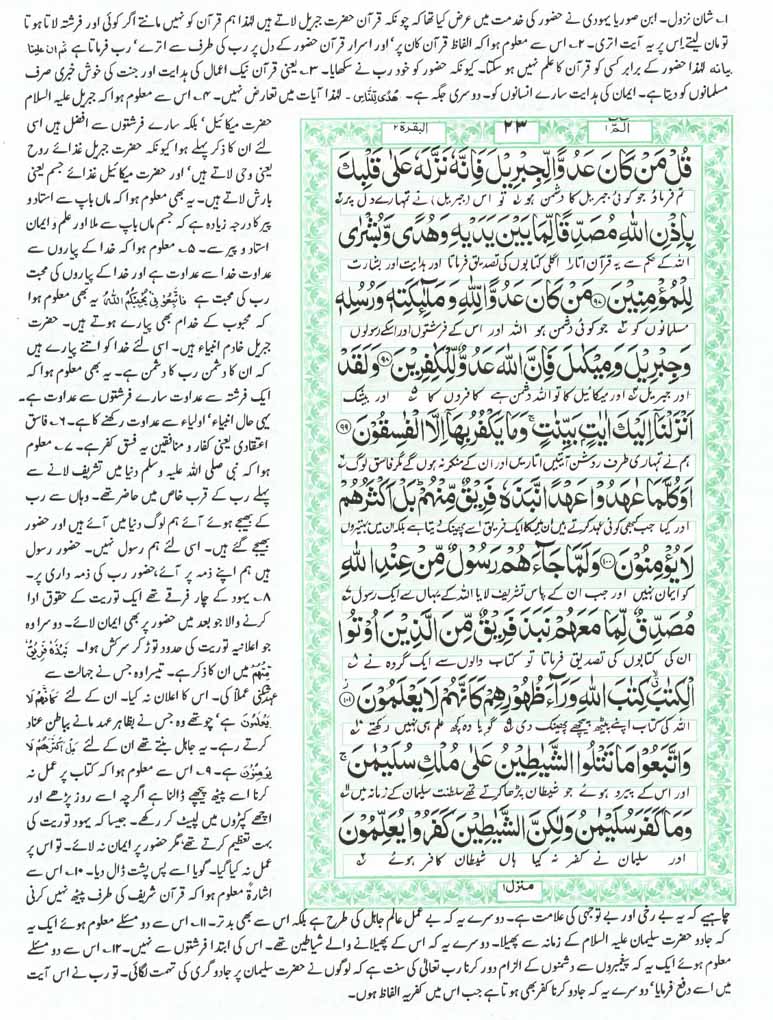 ۱۔ شان نزول۔ ابن صوریا یہودی نے حضور کی خدمت میں عرض کیا تھا کہ چونکہ قرآن حضرت جبریل لاتے ہیں لہٰذا ہم قرآن کو نہیں مانتے اگر کوئی اور فرشتہ لاتا ہوتا
تو مان لیتے اس پر یہ آیت اتری۔ ۲۔ اس سے معلوم ہوا کہ الفاظ قرآن کان پر، اور اسرار قرآن حضور کے دل پر رب کی طرف سے اترے، رب فرماتا ہے ثم ان علینا
بیانہ لہٰذا حضور کے برابر کسی کو قرآن کا علم نہیں ہو سکتا۔ کیونکہ حضور کو خود رب نے سکھایا۔ ۳۔ یعنی قرآن نیک اعمال کی ہدایت اور جنت کی خوش خبری صرف
مسلمانوں کو دیتا ہے۔ ایمان کی ہدایت سارے انسانوں کو۔ دوسری جگہ ہے۔ هُدًى لِّلنَّاسِ۔ لہٰذا آیات میں تعارض نہیں۔ ۴۔ اس سے معلوم ہوا کہ جبریل علیہ السلام
حضرت میکائیل، بلکہ سارے فرشتوں سے افضل ہیں اسی
لئے ان کا ذکر پہلے ہوا کیونکہ حضرت جبریل غذائے روح
یعنی وحی لاتے ہیں، اور حضرت میکائیل غذائے جسم یعنی
بارش لاتے ہیں۔ یہ بھی معلوم ہوا کہ ماں باپ سے استاد و
پیر کا درجہ زیادہ ہے کہ جسم ماں باپ سے ملا اور علم و ایمان
استاد و پیر سے۔ ۵۔ معلوم ہوا کہ خدا کے پیاروں سے
عداوت خدا سے عداوت ہے اور خدا کے پیاروں کی محبت
رب کی محبت ہے فَاتَّبِعُوْنِیْ یُحْبِبْکُمُ اللّٰهُ یہ بھی معلوم ہوا
کہ محبوب کے خدام بھی پیارے ہوتے ہیں۔ حضرت
جبریل خادم انبیاء ہیں۔ اسی لئے خدا کو اتنے پیارے ہیں
کہ ان کا دشمن رب کا دشمن ہے۔ یہ بھی معلوم ہوا کہ
ایک فرشتہ سے عداوت سارے فرشتوں سے عداوت ہے۔
یہی حال انبیاء، اولیاء سے عداوت رکھنے کا ہے۔ ۶۔ فاسق
اعتقادی یعنی کفار و منافقین یہ فسق کفر ہے۔ ۷۔ معلوم
ہوا کہ نبی صلی اللہ علیہ وسلم دنیا میں تشریف لانے سے
پہلے رب کے قرب خاص میں حاضر تھے۔ وہاں سے رب
کے بھیجے ہوئے آئے ہم لوگ دنیا میں آئے ہیں اور حضور
بھیجے گئے ہیں۔ اسی لئے ہم رسول نہیں۔ حضور رسول
ہیں ہم اپنے ذمہ پر آئے، حضور رب کی ذمہ داری پر۔
۸۔ یہود کے چار فرقے تھے ایک توریت کے حقوق ادا
کرنے والا جو بعد میں حضور پر بھی ایمان لائے۔ دوسرا وہ
جو اعلانیہ توریت کی حدود توڑ کر سرکش ہوا۔ نَبَذَهٗ فَرِیْقٌ
مِّنْهُمْ میں ان کا ذکر ہے۔ تیسرا وہ جس نے جہالت سے
عہد شکنی عملاً کی۔ اس کا اعلان نہ کیا۔ ان کے لئے کَاَنَّهُمْ لَا
یَعْلَمُوْنَ ہے، چوتھے وہ جس نے بظاہر عہد مانے بباطن عناد
کرتے رہے۔ یہ جاہل بنتے تھے ان کے لئے بَلْ اَکْثَرُهُمْ لَا
یُؤْمِنُوْنَ ہے۔ ۹۔ اس سے معلوم ہوا کہ کتاب پر عمل نہ
کرنا اسے پیٹھ پیچھے ڈالنا ہے اگرچہ اسے روز پڑھے اور
اچھے کپڑوں میں لپیٹ کر رکھے۔ جیسا کہ یہود توریت کی
بہت تعظیم کرتے تھے مگر حضور پر ایمان نہ لائے۔ تو اس پر
عمل نہ کیا گیا۔ گویا اسے پس پشت ڈال دیا۔ ۱۰۔ اس سے
اشارۃً معلوم ہوا کہ قرآن شریف کی طرف پیٹھ نہیں کرنی
الٓمّٓ ۱ ۲۳ البقرة ۲
قُلْ مَنْ كَانَ عَدُوًّا لِّجِبْرِیْلَ فَاِنَّهٗ نَزَّلَهٗ عَلٰی قَلْبِكَ
تم فرماؤ جو کوئی جبریل کا دشمن ہو تو اس (جبریل) نے تمہارے دل پر
بِاِذْنِ اللّٰهِ مُصَدِّقًا لِّمَا بَیْنَ یَدَیْهِ وَهُدًی وَّبُشْرٰی
اللہ کے حکم سے یہ قرآن اتارا اگلی کتابوں کی تصدیق فرماتا اور ہدایت اور بشارت
لِلْمُؤْمِنِیْنَ ۹۷ مَنْ كَانَ عَدُوًّا لِّلّٰهِ وَمَلٰٓئِكَتِهٖ وَرُسُلِهٖ
مسلمانوں کو جو کوئی دشمن ہو اللہ اور اس کے فرشتوں اور اسکے رسولوں
وَجِبْرِیْلَ وَمِیْكٰىلَ فَاِنَّ اللّٰهَ عَدُوٌّ لِّلْكٰفِرِیْنَ ۹۸ وَلَقَدْ
اور جبریل اور میکائیل کا تو اللہ دشمن ہے کافروں کا اور بیشک
اَنْزَلْنَاۤ اِلَیْكَ اٰیٰتٍۭ بَیِّنٰتٍ وَمَا یَكْفُرُ بِهَاۤ اِلَّا الْفٰسِقُوْنَ ۹۹
ہم نے تمہاری طرف روشن آیتیں اتاریں اور ان کے منکر نہ ہوں گے مگر فاسق لوگ
اَوَكُلَّمَا عٰهَدُوْا عَهْدًا نَّبَذَهٗ فَرِیْقٌ مِّنْهُمْ بَلْ اَكْثَرُهُمْ
اور کیا جب کبھی کوئی عہد کرتے ہیں ان میں کا ایک فریق اسے پھینک دیتا ہے بلکہ ان میں بہتیروں
لَا یُؤْمِنُوْنَ ۱۰۰ وَلَمَّا جَآءَهُمْ رَسُوْلٌ مِّنْ عِنْدِ اللّٰهِ
کو ایمان نہیں اور جب ان کے پاس تشریف لایا اللہ کے یہاں سے ایک رسول
مُصَدِّقٌ لِّمَا مَعَهُمْ نَبَذَ فَرِیْقٌ مِّنَ الَّذِیْنَ اُوْتُوا
ان کی کتابوں کی تصدیق فرماتا تو کتاب والوں سے ایک گروہ نے
الْكِتٰبَ كِتٰبَ اللّٰهِ وَرَآءَ ظُهُوْرِهِمْ كَاَنَّهُمْ لَا یَعْلَمُوْنَ ۱۰۱
اللہ کی کتاب اپنے پیٹھ پیچھے پھینک دی گویا وہ کچھ علم ہی نہیں رکھتے
وَاتَّبَعُوْا مَا تَتْلُوا الشَّیٰطِیْنُ عَلٰی مُلْكِ سُلَیْمٰنَ
اور اس کے پیرو ہوئے جو شیطان پڑھا کرتے تھے سلطنت سلیمان کے زمانہ میں
وَمَا كَفَرَ سُلَیْمٰنُ وَلٰكِنَّ الشَّیٰطِیْنَ كَفَرُوْا یُعَلِّمُوْنَ
اور سلیمان نے کفر نہ کیا ہاں شیطان کافر ہوئے
منزل ۱
چاہیے کہ یہ بے رخی اور بے توجہی کی علامت ہے۔ دوسرے یہ کہ بے عمل عالم جاہل کی طرح ہے بلکہ اس سے بھی بدتر۔ ۱۱۔ اس سے دو مسئلے معلوم ہوئے ایک یہ
کہ جادو حضرت سلیمان علیہ السلام کے زمانہ سے پھیلا۔ دوسرے یہ کہ اس کے پھیلانے والے شیاطین تھے۔ اس کی ابتدا فرشتوں سے نہیں۔ ۱۲۔ اس سے دو مسئلے
معلوم ہوئے ایک یہ کہ پیغمبروں سے دشمنوں کے الزام دور کرنا رب تعالیٰ کی سنت ہے کہ لوگوں نے حضرت سلیمان پر جادو گری کی تہمت لگائی۔ تو رب نے اس آیت
میں اسے دفع فرمایا، دوسرے یہ کہ جادو کرنا کفر بھی ہوتا ہے جب اس میں کفریہ الفاظ ہوں۔